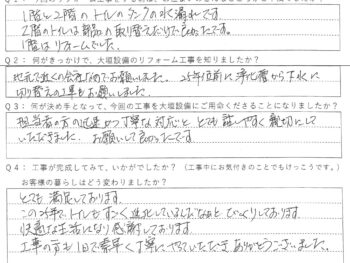 1階と2階のトイレのタンクの水漏れです。
2階のトイレは部品の取り替えだけで良かったです。
1階はリフォームでした。
Q2：何がきっかけで、大垣設備のリフォーム工事を知りましたか？
地元で近くの会社なのでお願いしました。25年位前に浄化槽から下水に
切り替えの工事をお願いしました。
Q3：何が決め手となって、今回の工事を大垣設備にご用命くださることになりましたか？
担当者の方の迅速かつ丁寧な対応と とても話しやすく親切にして
いただきました。お願いして良かったです。
Q4：工事が完成してみて、いかがでしたか？（工事中にお気付きのことでもけっこうです。）
お客様の暮らしはどう変わりましたか？
とても満足しております。
この25年でトイレもすごく進化しているんだなぁとびっくりしております。
快適な生活になり感謝しております。
工事の方も1日で素早く丁寧にやっていただきありがとうございました。